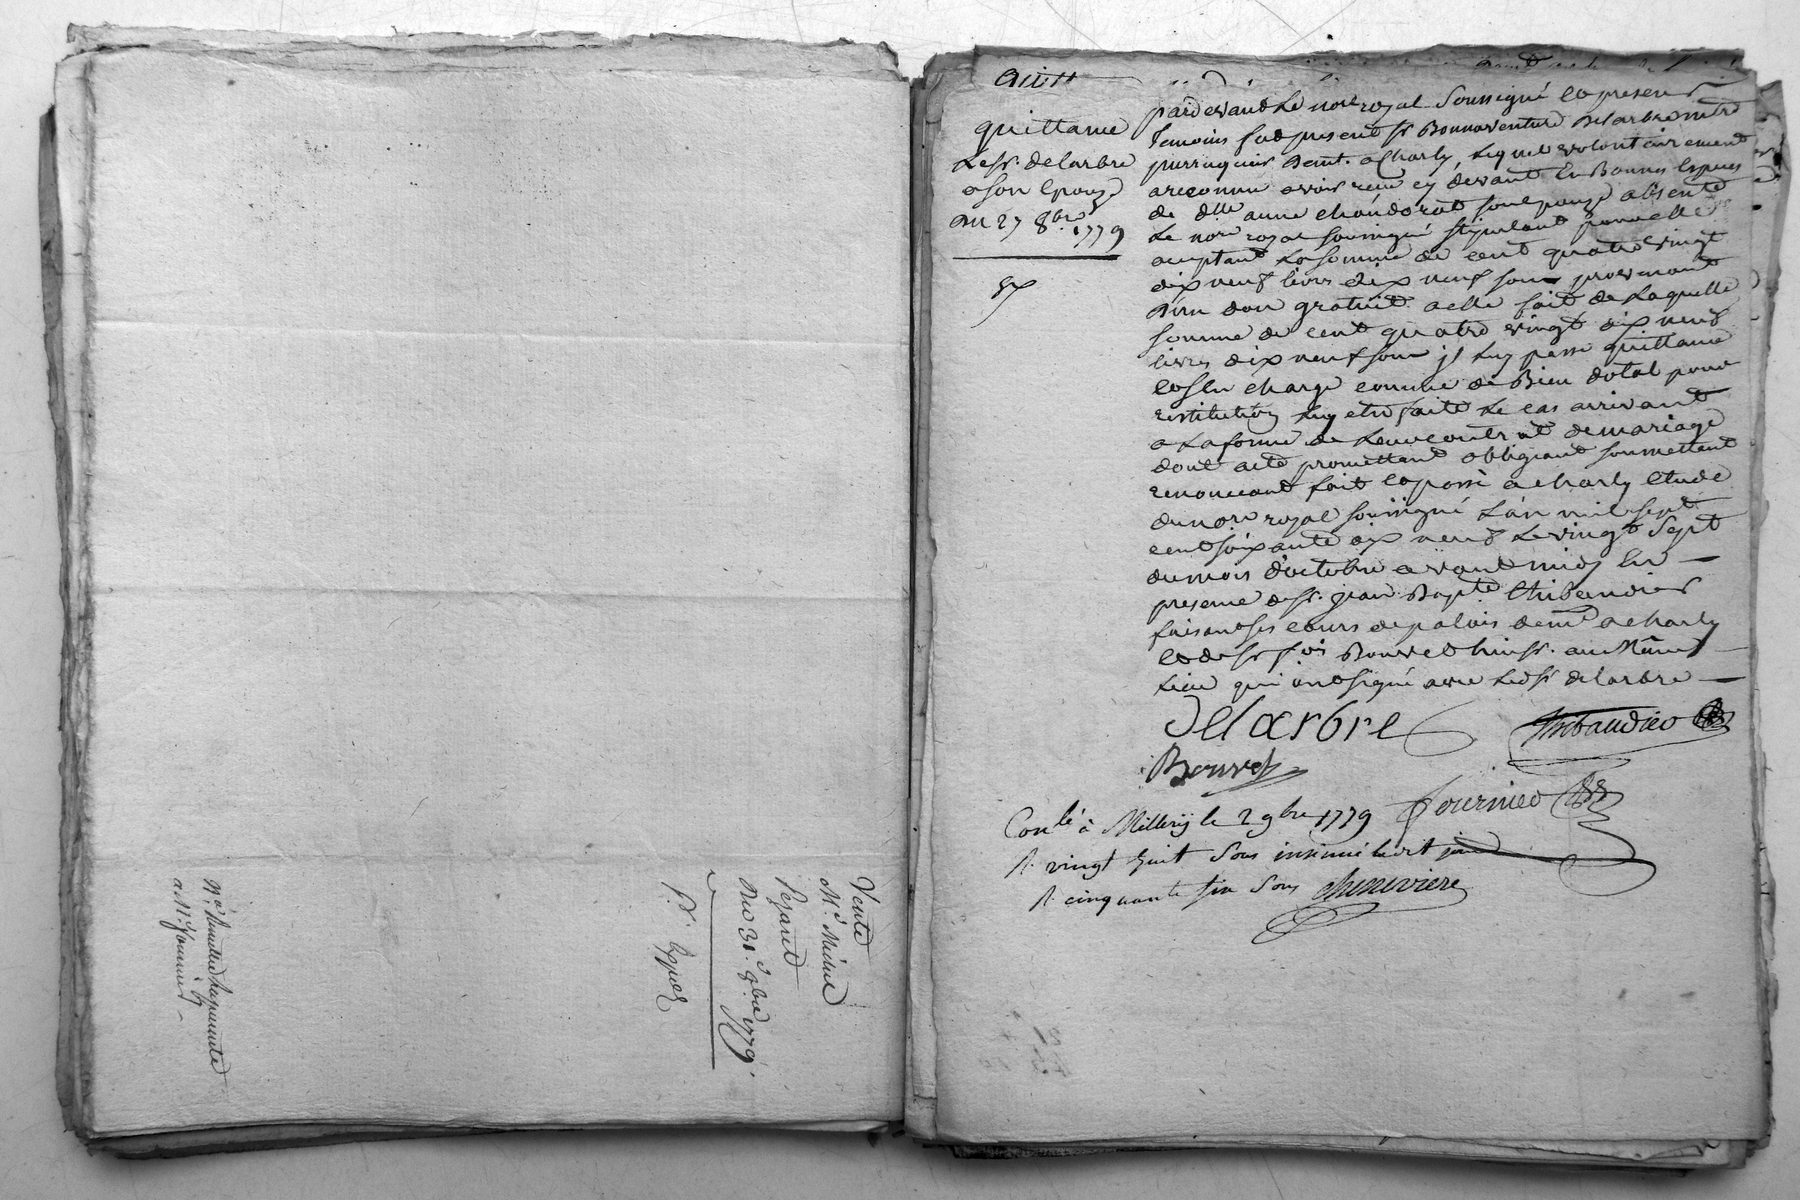 Vente
Mr. Médule
Du 31. 8bre 1779.
a Mr. fournier
quittance
Le sr. delarbre
a son Epouze
Du 27 8bre 1779
pardevant Le nore royal Soussigné Et presens
temoins fut present sr Bonnaventure Delarbre mtre
perruquier demt. a Charly, Lequel volontairement
a reconnu avoir reçu cy devant En Bonnes Especes
de dlle anne chandorat son epouze absente
Le nore royal soussigné stipulant pour elle
acceptant La somme de cent quatre vingt
dix neuf livres dix neuf sous provenant
d'un don gratuit a elle fait de Laquelle
somme de cent quatre vingt dix neuf
livres dix neuf sous il Luy passe quittance
Et s'en charge comme de Bien dotal pour
restitution Luy etre faite Le cas arrivant
a La forme de Leur contrat de mariage
dont acte promettant obligeant soumettant
renonceant fait Et passé a charly Etude
du nore royal soussigné L'an mil sept
cent soixante dix neuf Le vingt Sept
du mois d'octobre avant midy En
presence de sr. jean Bapte Thibaudier
faisant ses cours de palais demt a charly
Et de sr fois Bouvet huissr. au Même
Lieu qui ont signé avec Ledt sr delarbre
Delarbre Thibaudier
Bouvet
fournier
Conlé à Millery le 2 9bre 1779
R. vingt huit Sous insinué ledit jour
R. cinquante six Sous cheneviere